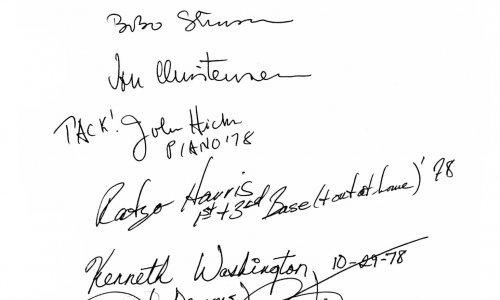 BoBo Stenson
Jon Christensen
TACK! John Hicks
PIANO '78
Ratzo Harris
1st + 3rd Base (+ out at home) '78
Kenneth Washington 10-29-78
Dennis